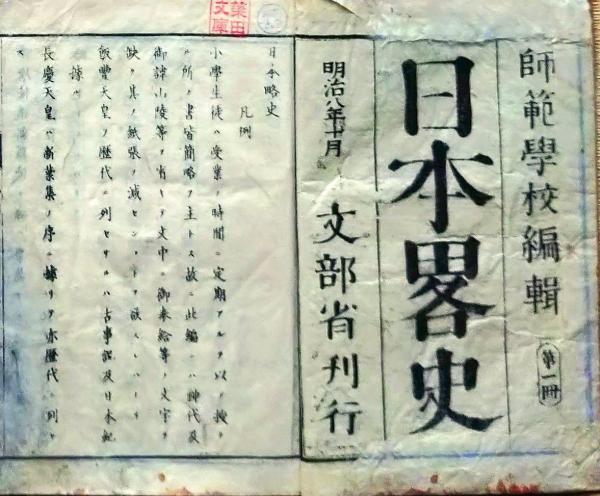 師範學校編輯
第一冊
日本畧史
明治八年十月 文部省刊行
日本略史
凡例
小學生徒ハ受業ノ時間ニ定期アルヲ以テ授ク
ル所ノ書皆簡略ヲ主トス故ニ此編ハ神代及
御諱山陵等ヲ省キ又文中ニ御奉給等ノ文字ヲ
缺ク其ノ紙張ヲ減センコトヲ欲スレハナリ
飯豐天皇ヲ歴代ニ列セサルハ古事記及日本紀
ニ據ル
長慶天皇ハ新葉集ノ序ニ據リテ亦歴代ニ列セ
ス